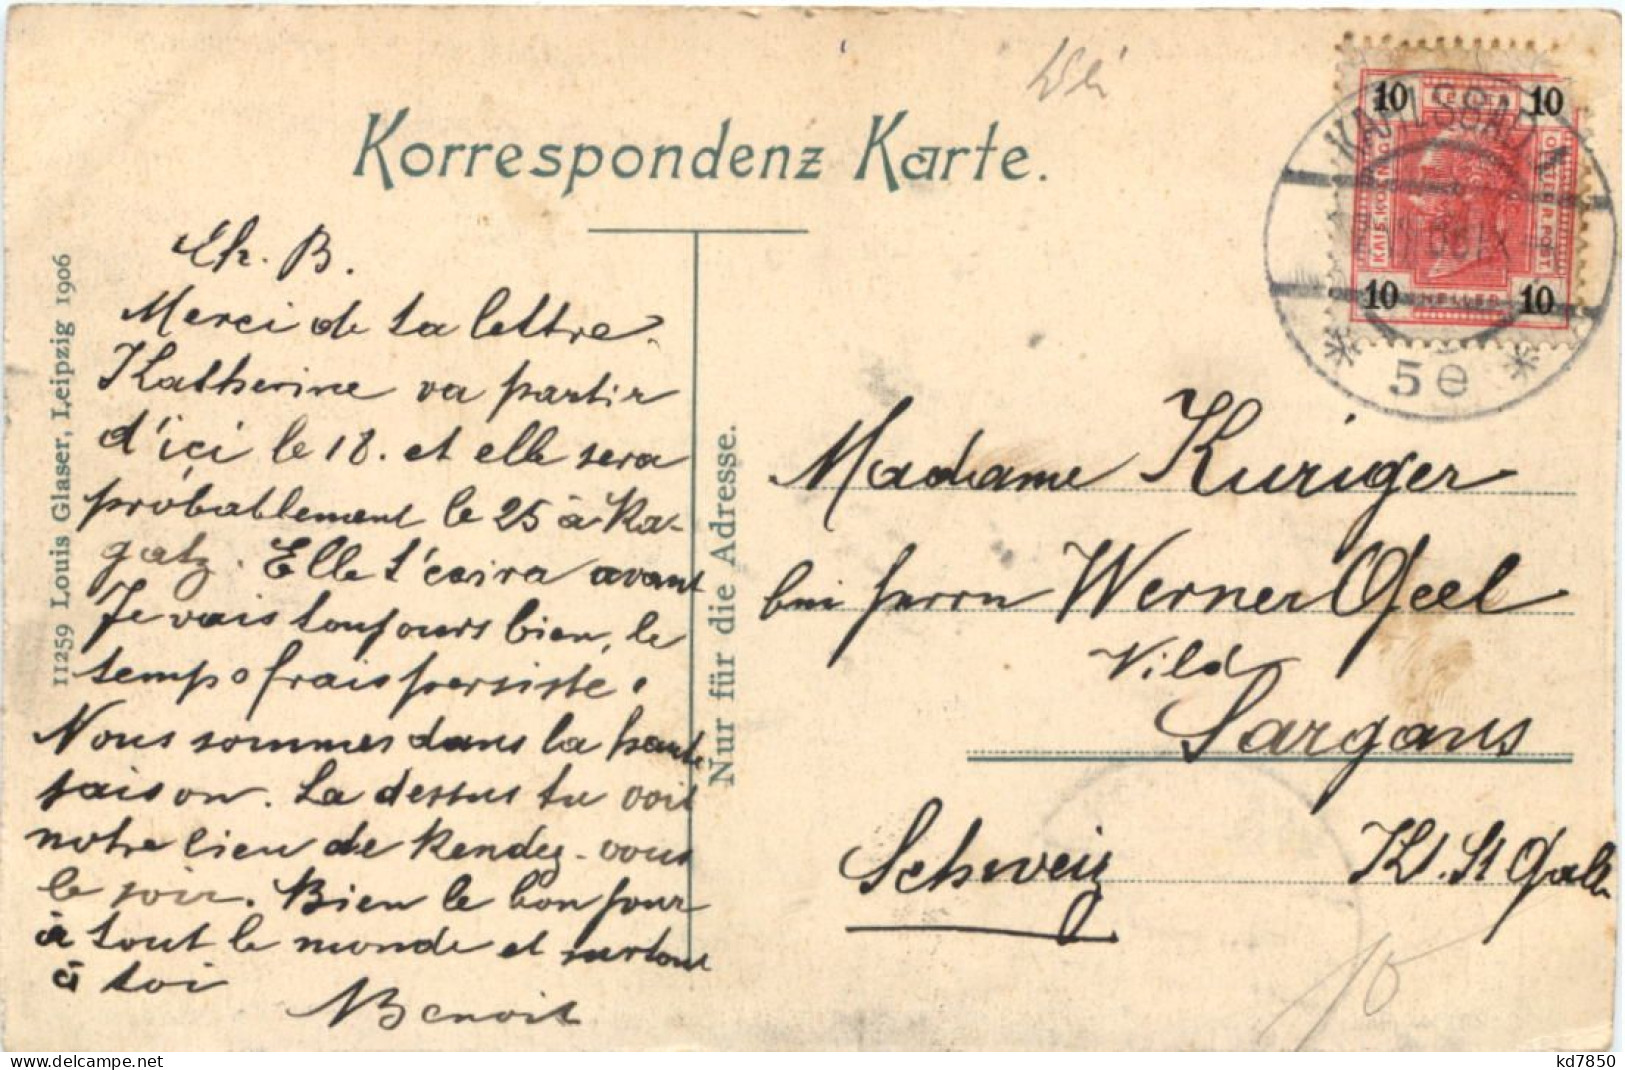 Korrespondenz Karte.
11259 Louis Glaser, Leipzig 1906
Nur für die Adresse.
Ch. B.
Merci de ta lettre.
Katherine va partir
d'içi le 18. et elle sera
probablement le 25 à Ra-
gatz. Elle t'ecrira avant
Je vais toujours bien, le
temps frais persiste.
Nous sommes dans la haute
saison. La dessus tu voit
notre lieu de Rendez-vous
le soir. Bien le bonjour
à tout le monde et surtout
à toi
Benoit
KARLSBAD 1
5e
10 10
KAIS. KÖNIGL.
ÖSTERR. POST.
10 HELLER 10
Madame Kuriger
bei Herrn Werner Geel
Vild
Sargans
Schweiz Kt. St Galln
kd7850